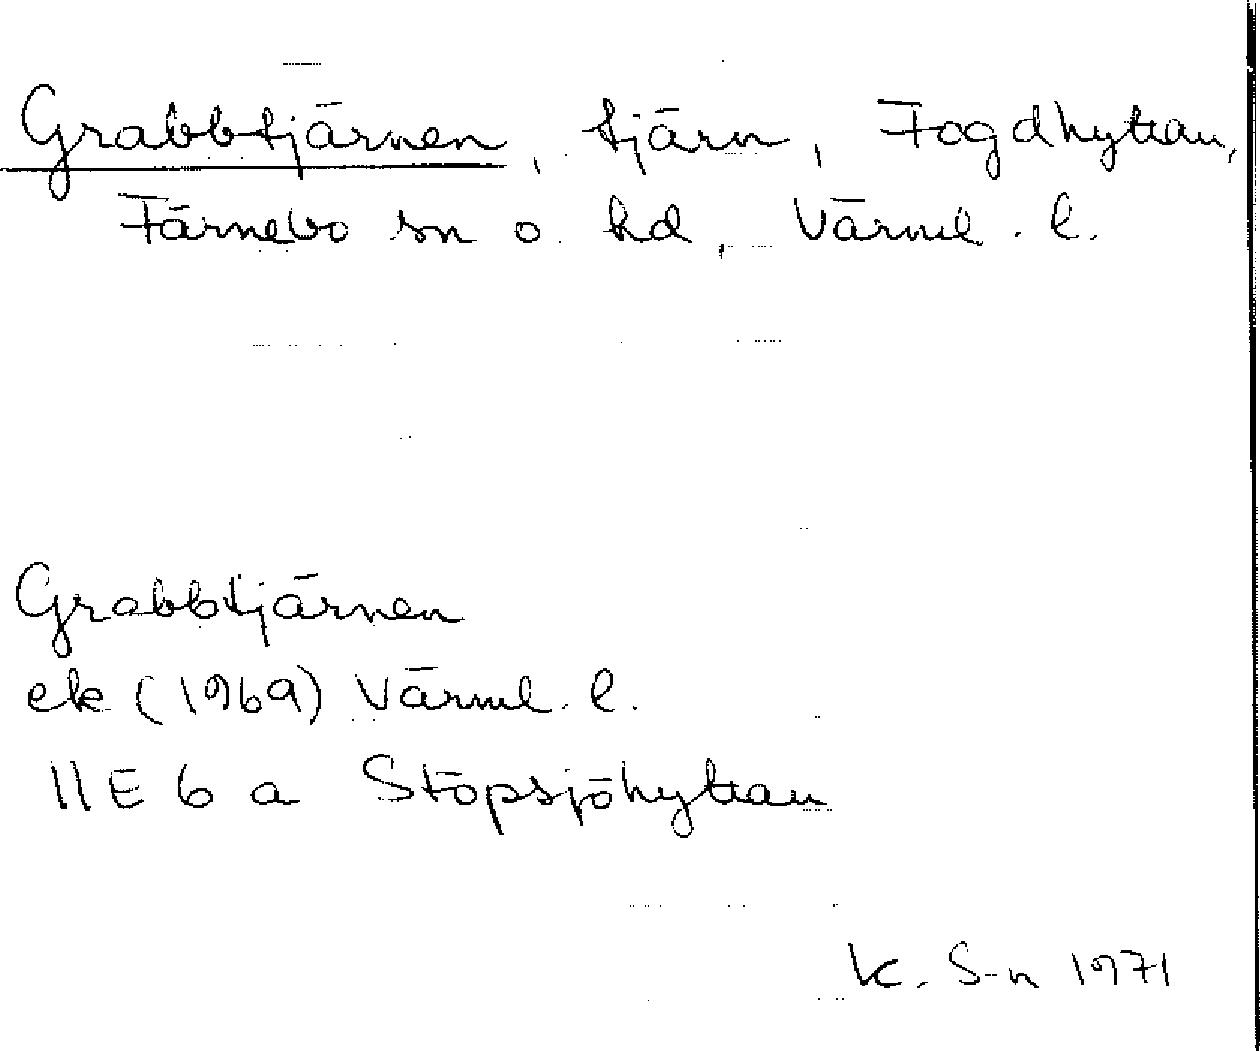 Grabbtjärnen, tjärn, Fogdhyttan,
Färnebo sn o. hd, Värml. l.
Grabbtjärnen
ek (1969) Värml. l.
11E 6 a Stöpsjöhyttan
K. S-n 1971